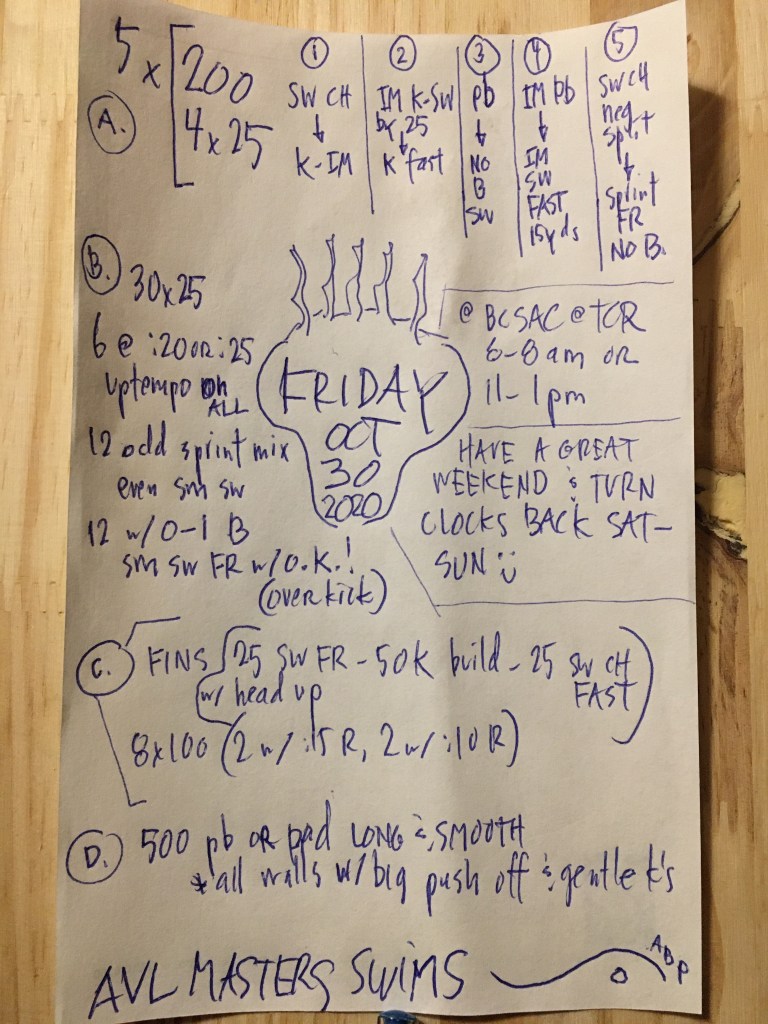 A.
5 x [200
4 x 25
①
SW CH
↓
K-IM
②
IM K-SW
by 25
↓
K fast
③
pb
↓
NO
B
SW
④
IM pb
↓
IM
SW
FAST
15yds
⑤
SW CH
neg
split
↓
sprint
FR
NO B.
B. 30x25
6 @ :20 OR :25
uptempo on
ALL
12 odd sprint mix
even sm sw
12 w/ 0-1 B
sm sw FR w/ O.K.!
(overkick)
FRIDAY
OCT
30
2020
@ BCSAC @ TCR
6-8 am OR
11-1pm
HAVE A GREAT
WEEKEND & TURN
CLOCKS BACK SAT-
SUN
C. FINS 25 SW FR - 50K build - 25 SW CH
w/ head up FAST
8x100 (2 w/ :15 R, 2 w/ :10 R)
D. 500 pb OR ppd LONG & SMOOTH
*all walls w/ big push off & gentle K's
AVL MASTERS SWIMS
ABP